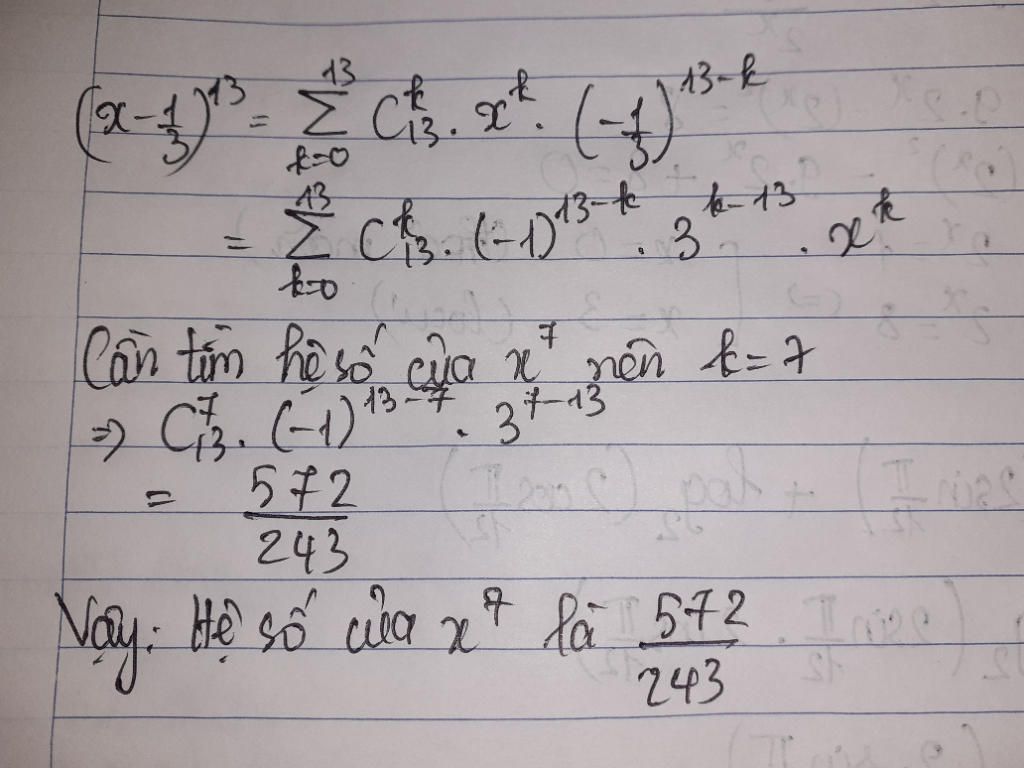 (x - 1/3)^13 = ∑_{k=0}^{13} C_{13}^{k} . x^k . (-1/3)^{13-k}
= ∑_{k=0}^{13} C_{13}^{k} . (-1)^{13-k} . 3^{k-13} . x^k
Cần tìm hệ số của x^7 nên k = 7
⇒ C_{13}^{7} . (-1)^{13-7} . 3^{7-13}
= 572/243
Vậy: Hệ số của x^7 là 572/243